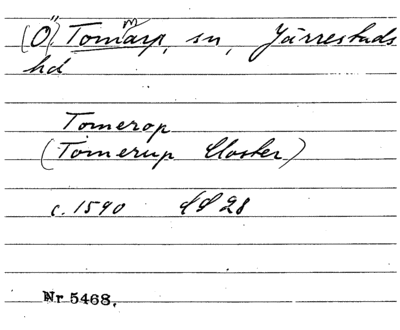 (Ö) Tommarp, sn, Järrestads
hd
Tomerop
(Tomerup Closter)
c. 1590
Nr 5468.